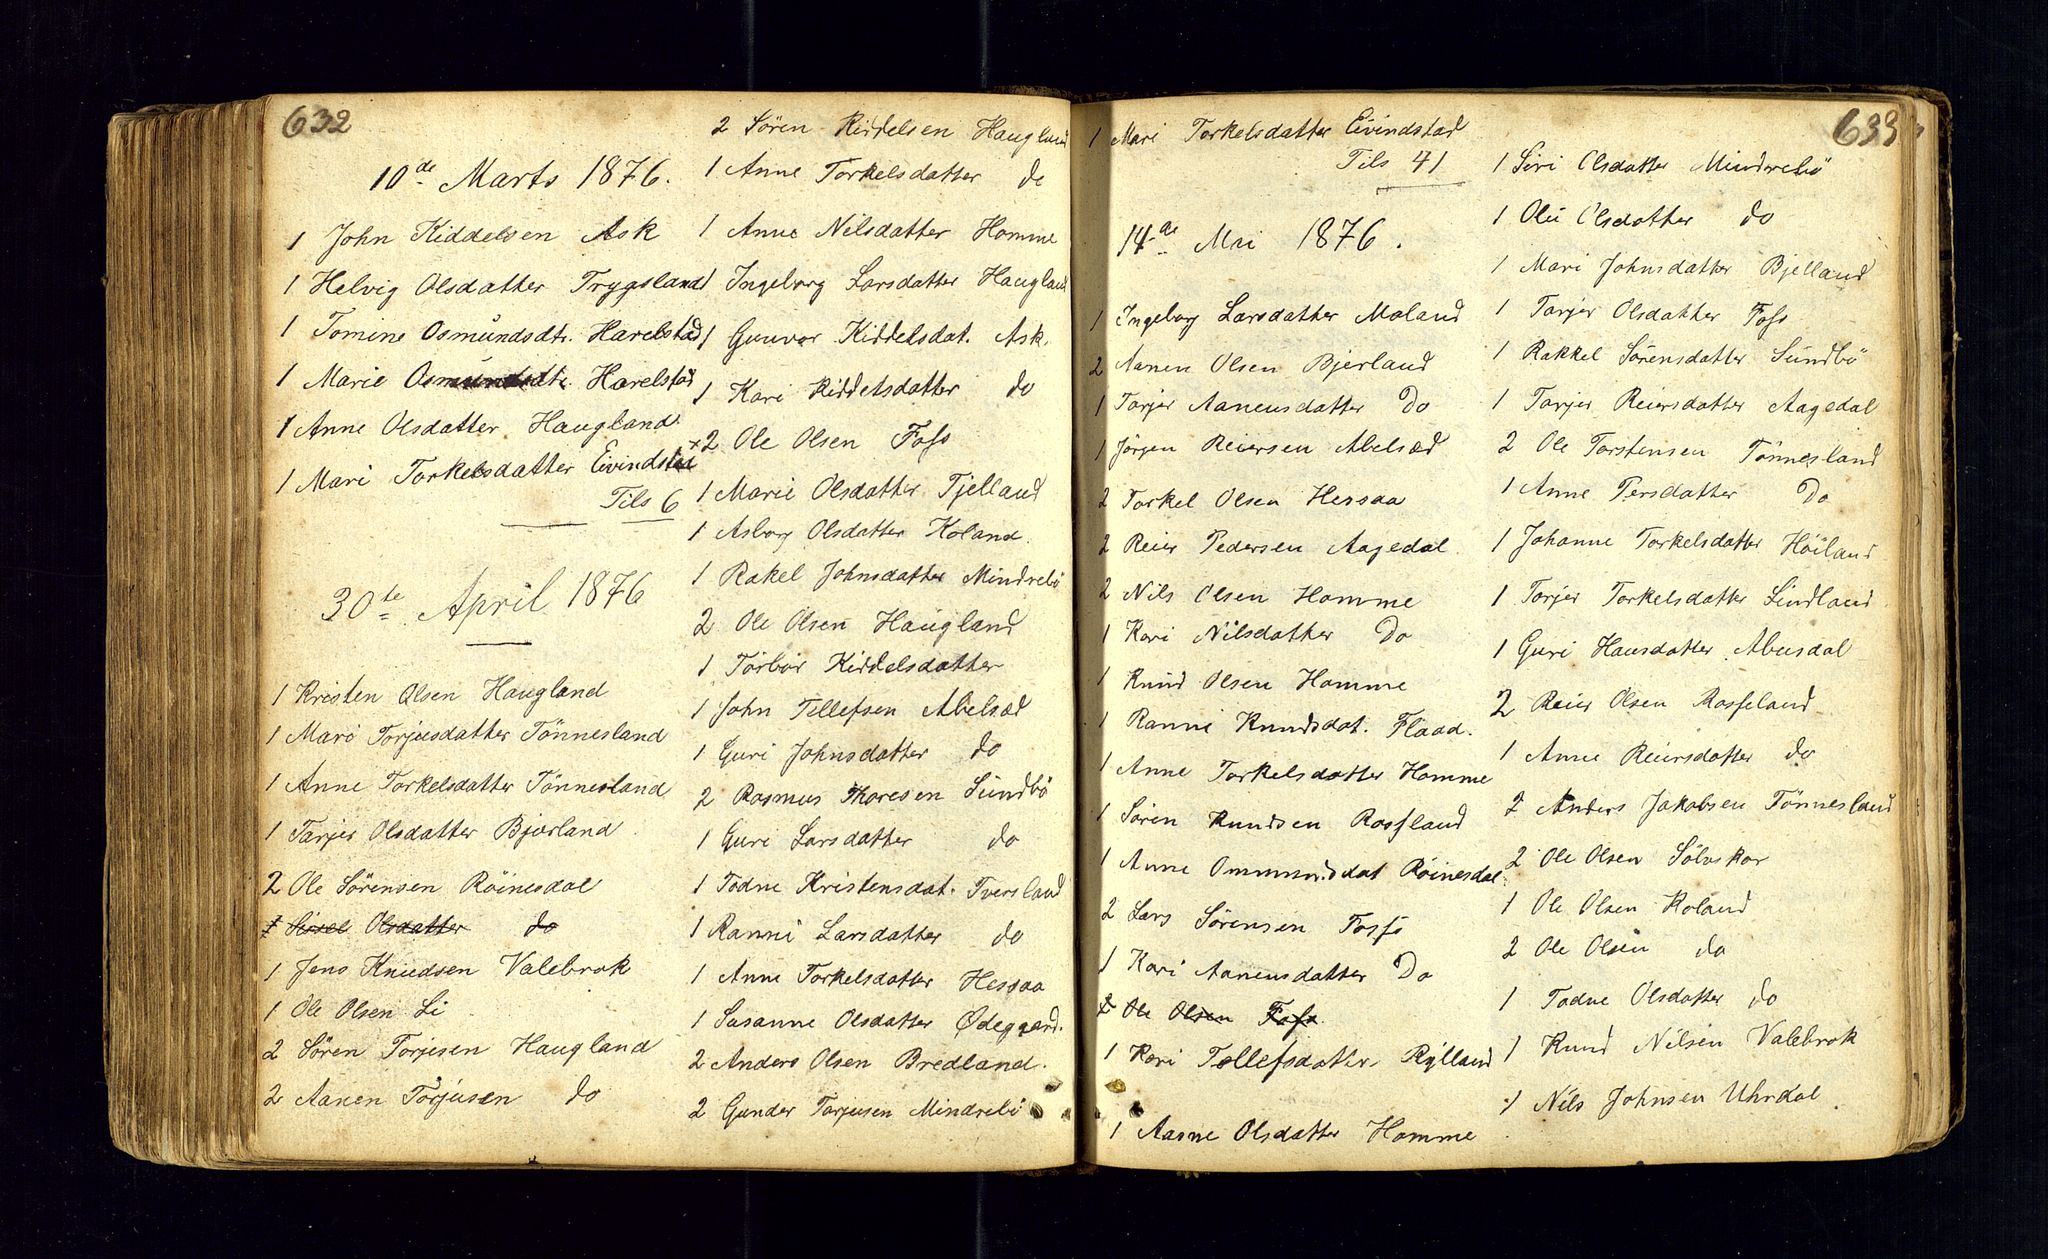 632
10de Marts 1876.
1 John Kiddelsen Ask
1 Helvig Olsdatter Trygsland
1 Tomine Osmundsdtr. Harelstad
1 Marie Osmundsdtr. Harelstad
1 Anne Olsdatter Haugland
1 Mari Torkelsdatter Eivindstad
Tils 6
30te April 1876
1 Kristen Olsen Haugland
1 Mari Torjusdatter Tönnesland
1 Anne Torkelsdatter Tönnesland
1 Tarjer Olsdatter Bjorland
2 Ole Sörensen Röinesdal
1 Sissel Olsdatter do
1 Jens Knudsen Valebrok
1 Ole Olsen Li
2 Sören Torjusen Haugland
2 Aanen Torjusen do
2 Sören Kiddelsen Haugland
1 Anne Torkelsdatter do
1 Anne Nilsdatter Homme
1 Ingeborg Larsdatter Haugland
1 Gunvor Kiddelsdat. Ask.
1 Kari Kiddelsdatter do
×2 Ole Olsen Foss
1 Marie Olsdatter Tjelland
1 Asborg Olsdatter Koland.
1 Rakel Johnsdatter Mindrebö
2 Ole Olsen Haugland
1 Torbor Kiddelsdatter
1 John Tellefsen Abelsæd
1 Guri Johnsdatter do
2 Rasmus Thoresen Sundbö
1 Guri Larsdatter do
1 Todne Kristensdat. Tversland
1 Ranni Larsdatter do
1 Anne Torkelsdatter Hessaa
1 Susanne Olsdatter Ødegaard.
2 Anders Olsen Bredland.
2 Gunder Torjusen Mindrebö
633
1 Mari Torkelsdatter Eivindstad
Tils 41
14de Mai 1876.
1 Ingeborg Larsdatter Moland
2 Aanen Olsen Bjerland
1 Torjer Aanensdatter Do
1 Jörgen Reiersen Abelsæd
2 Torkel Olsen Hessaa
2 Reier Pedersen Aagedal
2 Nils Olsen Homme
1 Kari Nilsdatter Do
1 Knud Olsen Homme
1 Ranni Knudsdat. Flaad.
1 Anne Torkelsdatter Homme
1 Sören Knudsen Rossland
1 Anne Ommundsdat Röinesdal
2 Lars Sörensen Foss
1 Kari Aanensdatter Do
2 Ole Olsen Foss.
1 Kari Tellefsdatter Rylland
1 Aasne Olsdatter Homme
1 Siri Olsdatter Mindrebö
1 Oli Olsdatter do
1 Mari Johnsdatter Bjelland
1 Tarjer Olsdatter Foss
1 Rakkel Sörensdatter Sundbö
1 Tarjer Reiersdatter Aagedal
2 Ole Torstensen Tönnesland
1 Anne Persdatter Do
1 Johanne Torkelsdatter Höiland
1 Torjer Torkelsdatter Lindland
1 Guri Hansdatter Abusdal
2 Reier Olsen Rosseland
1 Anne Reiersdatter do
2 Anders Jakobsen Tönnesland
2 Ole Olsen Sölvskar
1 Ole Olsen Koland
2 Ole Olsen do
1 Todne Olsdatter do
1 Knud Nilsen Valebrok
1 Nils Johnsen Uhrdal